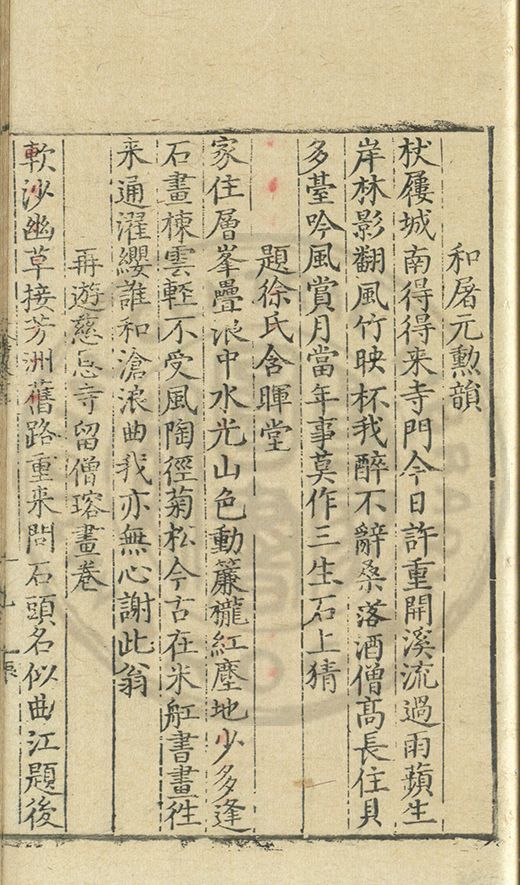 和屠元勲韻
杖屨城南得得来寺門今日許重開溪流過雨蘋生
岸林影翻風竹映杯我醉不辭桑落酒僧髙長住貝
多臺吟風賞月當年事莫作三生石上猜
題徐氏含暉堂
家住層峯疊浪中水光山色動簾櫳紅塵地少多逢
石畫棟雲輕不受風陶徑菊松今古在米舡書畫徃
来通濯纓誰和滄浪曲我亦無心謝此翁
再遊慈忍寺留僧瑢畫卷
軟沙幽草接芳洲舊路重来問石頭名似曲江題後